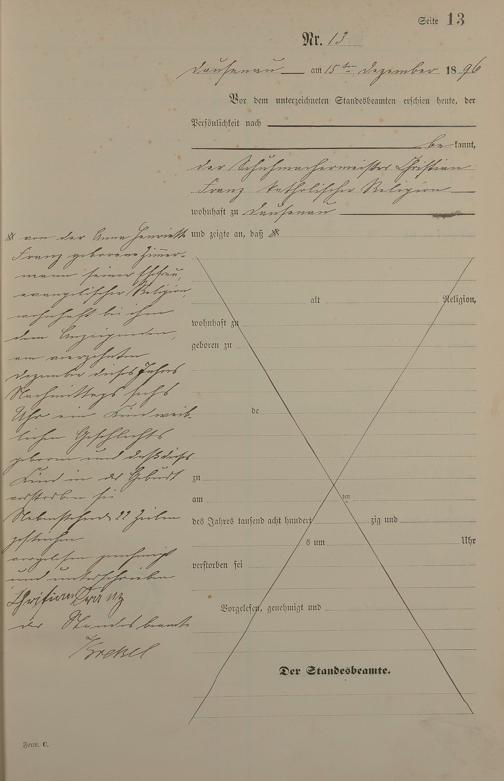 Seite 13
Nr. 13
Dausenau am 15ten Dezember 1896
Vor dem unterzeichneten Standesbeamten erschien heute, der
Persönlichkeit nach
be kannt,
der Schuhmachermeister Christian
Franz katholischer Religion
wohnhaft zu Dausenau
und zeigte an, daß
von der Anna Henriette
Franz geborene Zimmer-
mann seiner Ehefrau,
evangelischer Religion,
wohnhaft bei ihm
dem Anzeigenden,
am vierzehnten
Dezember dieses Jahres
Nachmittags sechs
Uhr ein Kind weib-
lichen Geschlechts
geboren und daß dieses
Kind in der Geburt
verstorben sei
Nebenstehende 22 Zeilen
gestrichen
vorgelesen genehmigt
und unterschrieben
Christian Franz
der Standesbeamte
alt Religion,
wohnhaft zu
geboren zu
de
zu
am ten
des Jahres tausend acht hundert zig und
s um Uhr
verstorben sei
Vorgelesen, genehmigt und
Der Standesbeamte.
Form. C.